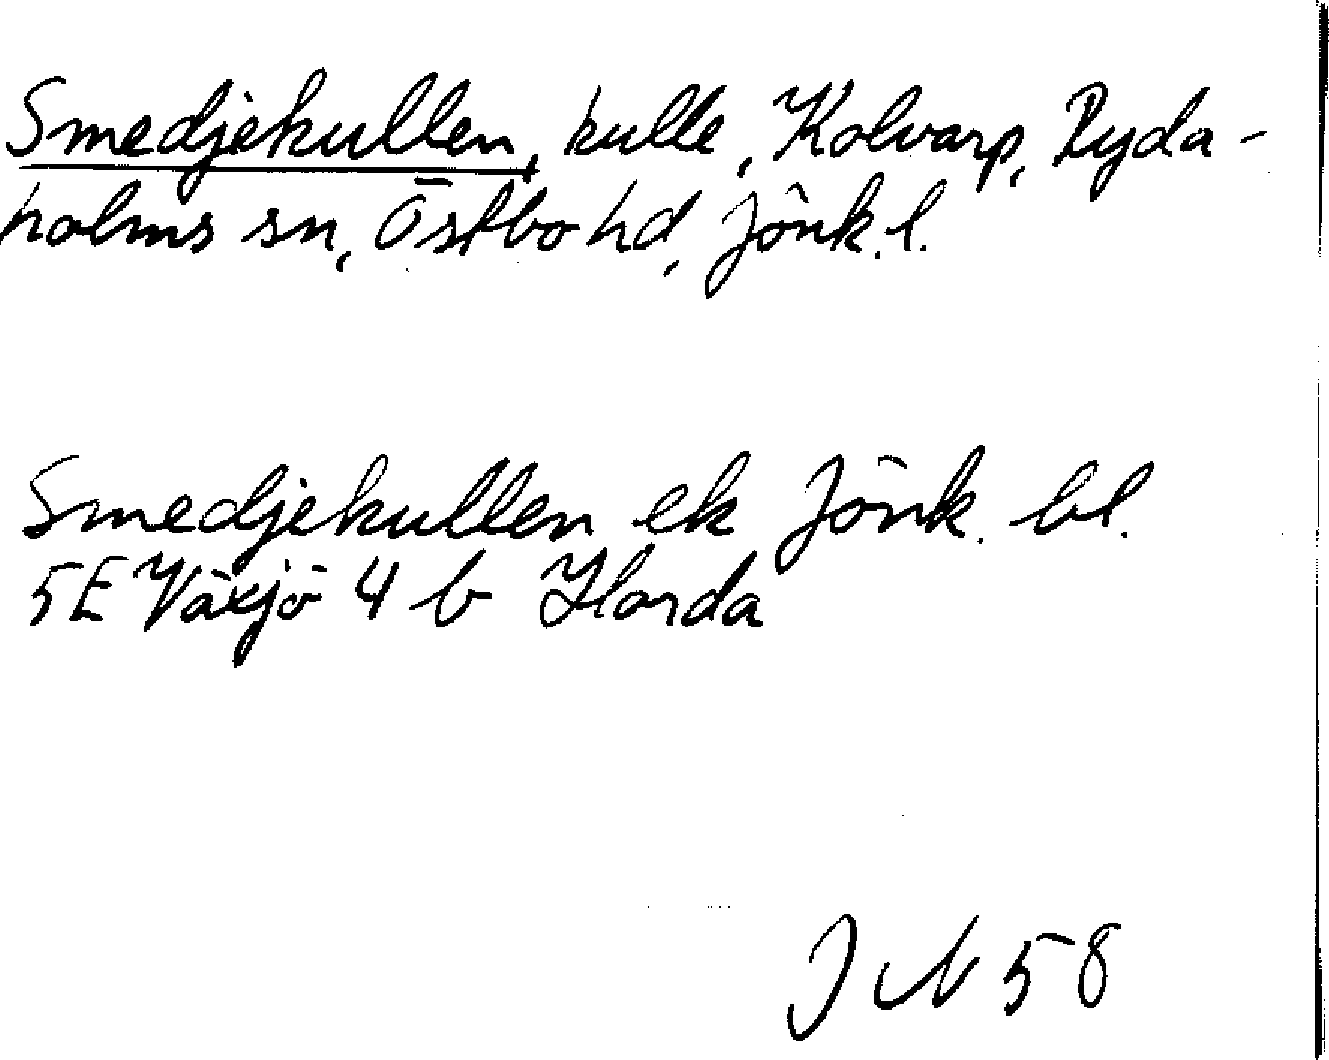 Smedjekullen, kulle, Kolvarp, Ryda-
holms sn, Östbo hd, Jönk. l.
Smedjekullen ek Jönk. bl.
5E Växjö 4 b Horda
58